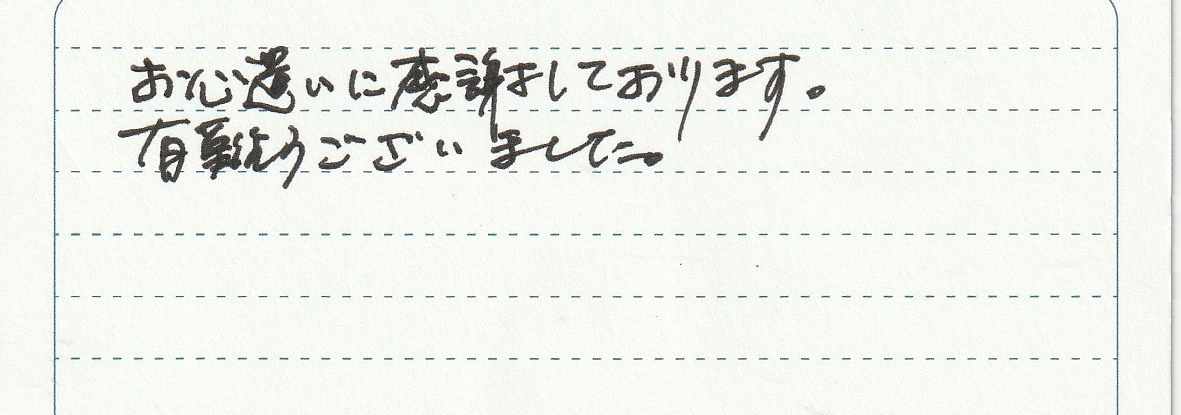 お心遣いに感謝しております。
有難うございました。